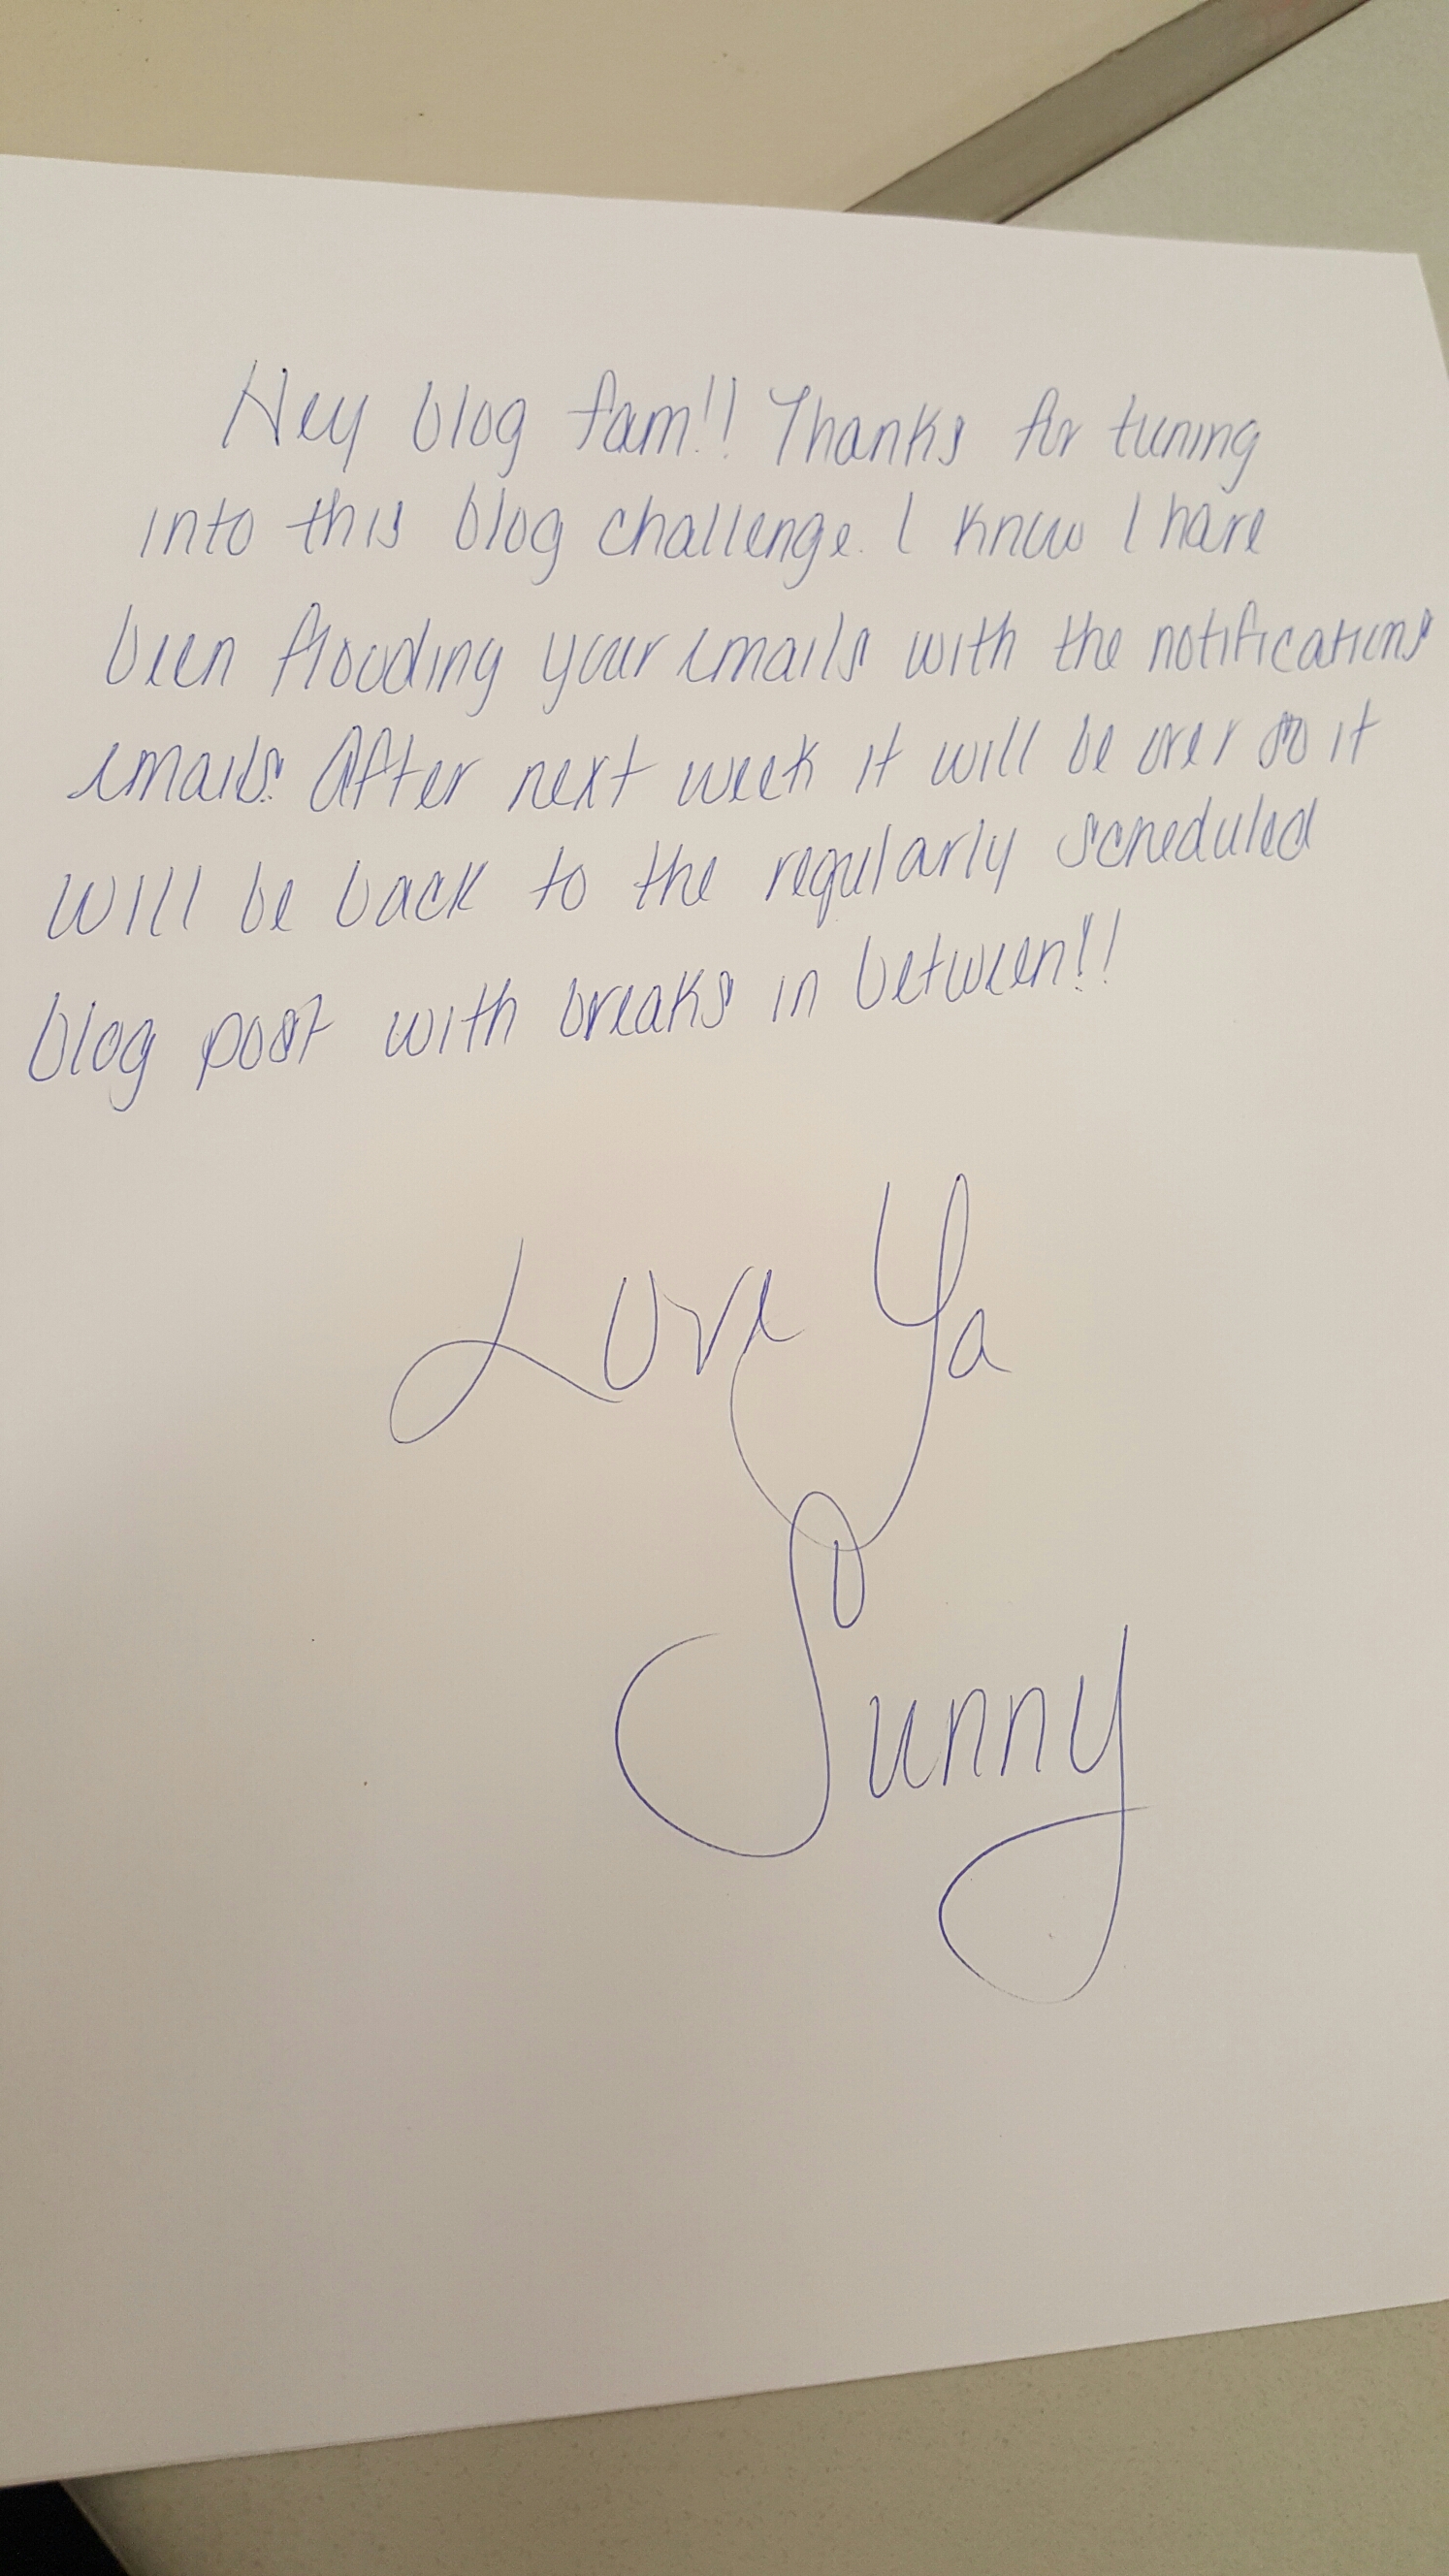 Hey blog fam!! Thanks for tuning
into this blog challenge. I know I have
been flooding your emails with the notifications
emails. After next week it will be over so it
will be back to the regularly scheduled
blog post with breaks in between!!
Love Ya
Sunny